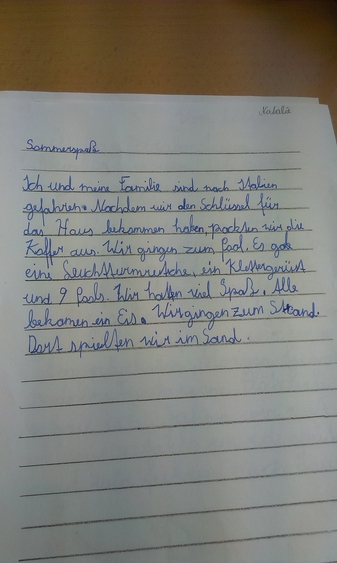 Natalie
Sommerspaß
Ich und meine Familie sind nach Italien
gefahren. Nachdem wir den Schlüssel für
das Haus bekommen haben, packten wir die
Koffer aus. Wir gingen zum Pool. Es gab
eine Leuchtturmrutsche, ein Klettergerüst
und 9 Pools. Wir hatten viel Spaß. Alle
bekamen ein Eis. Wir gingen zum Strand.
Dort spielten wir im Sand.